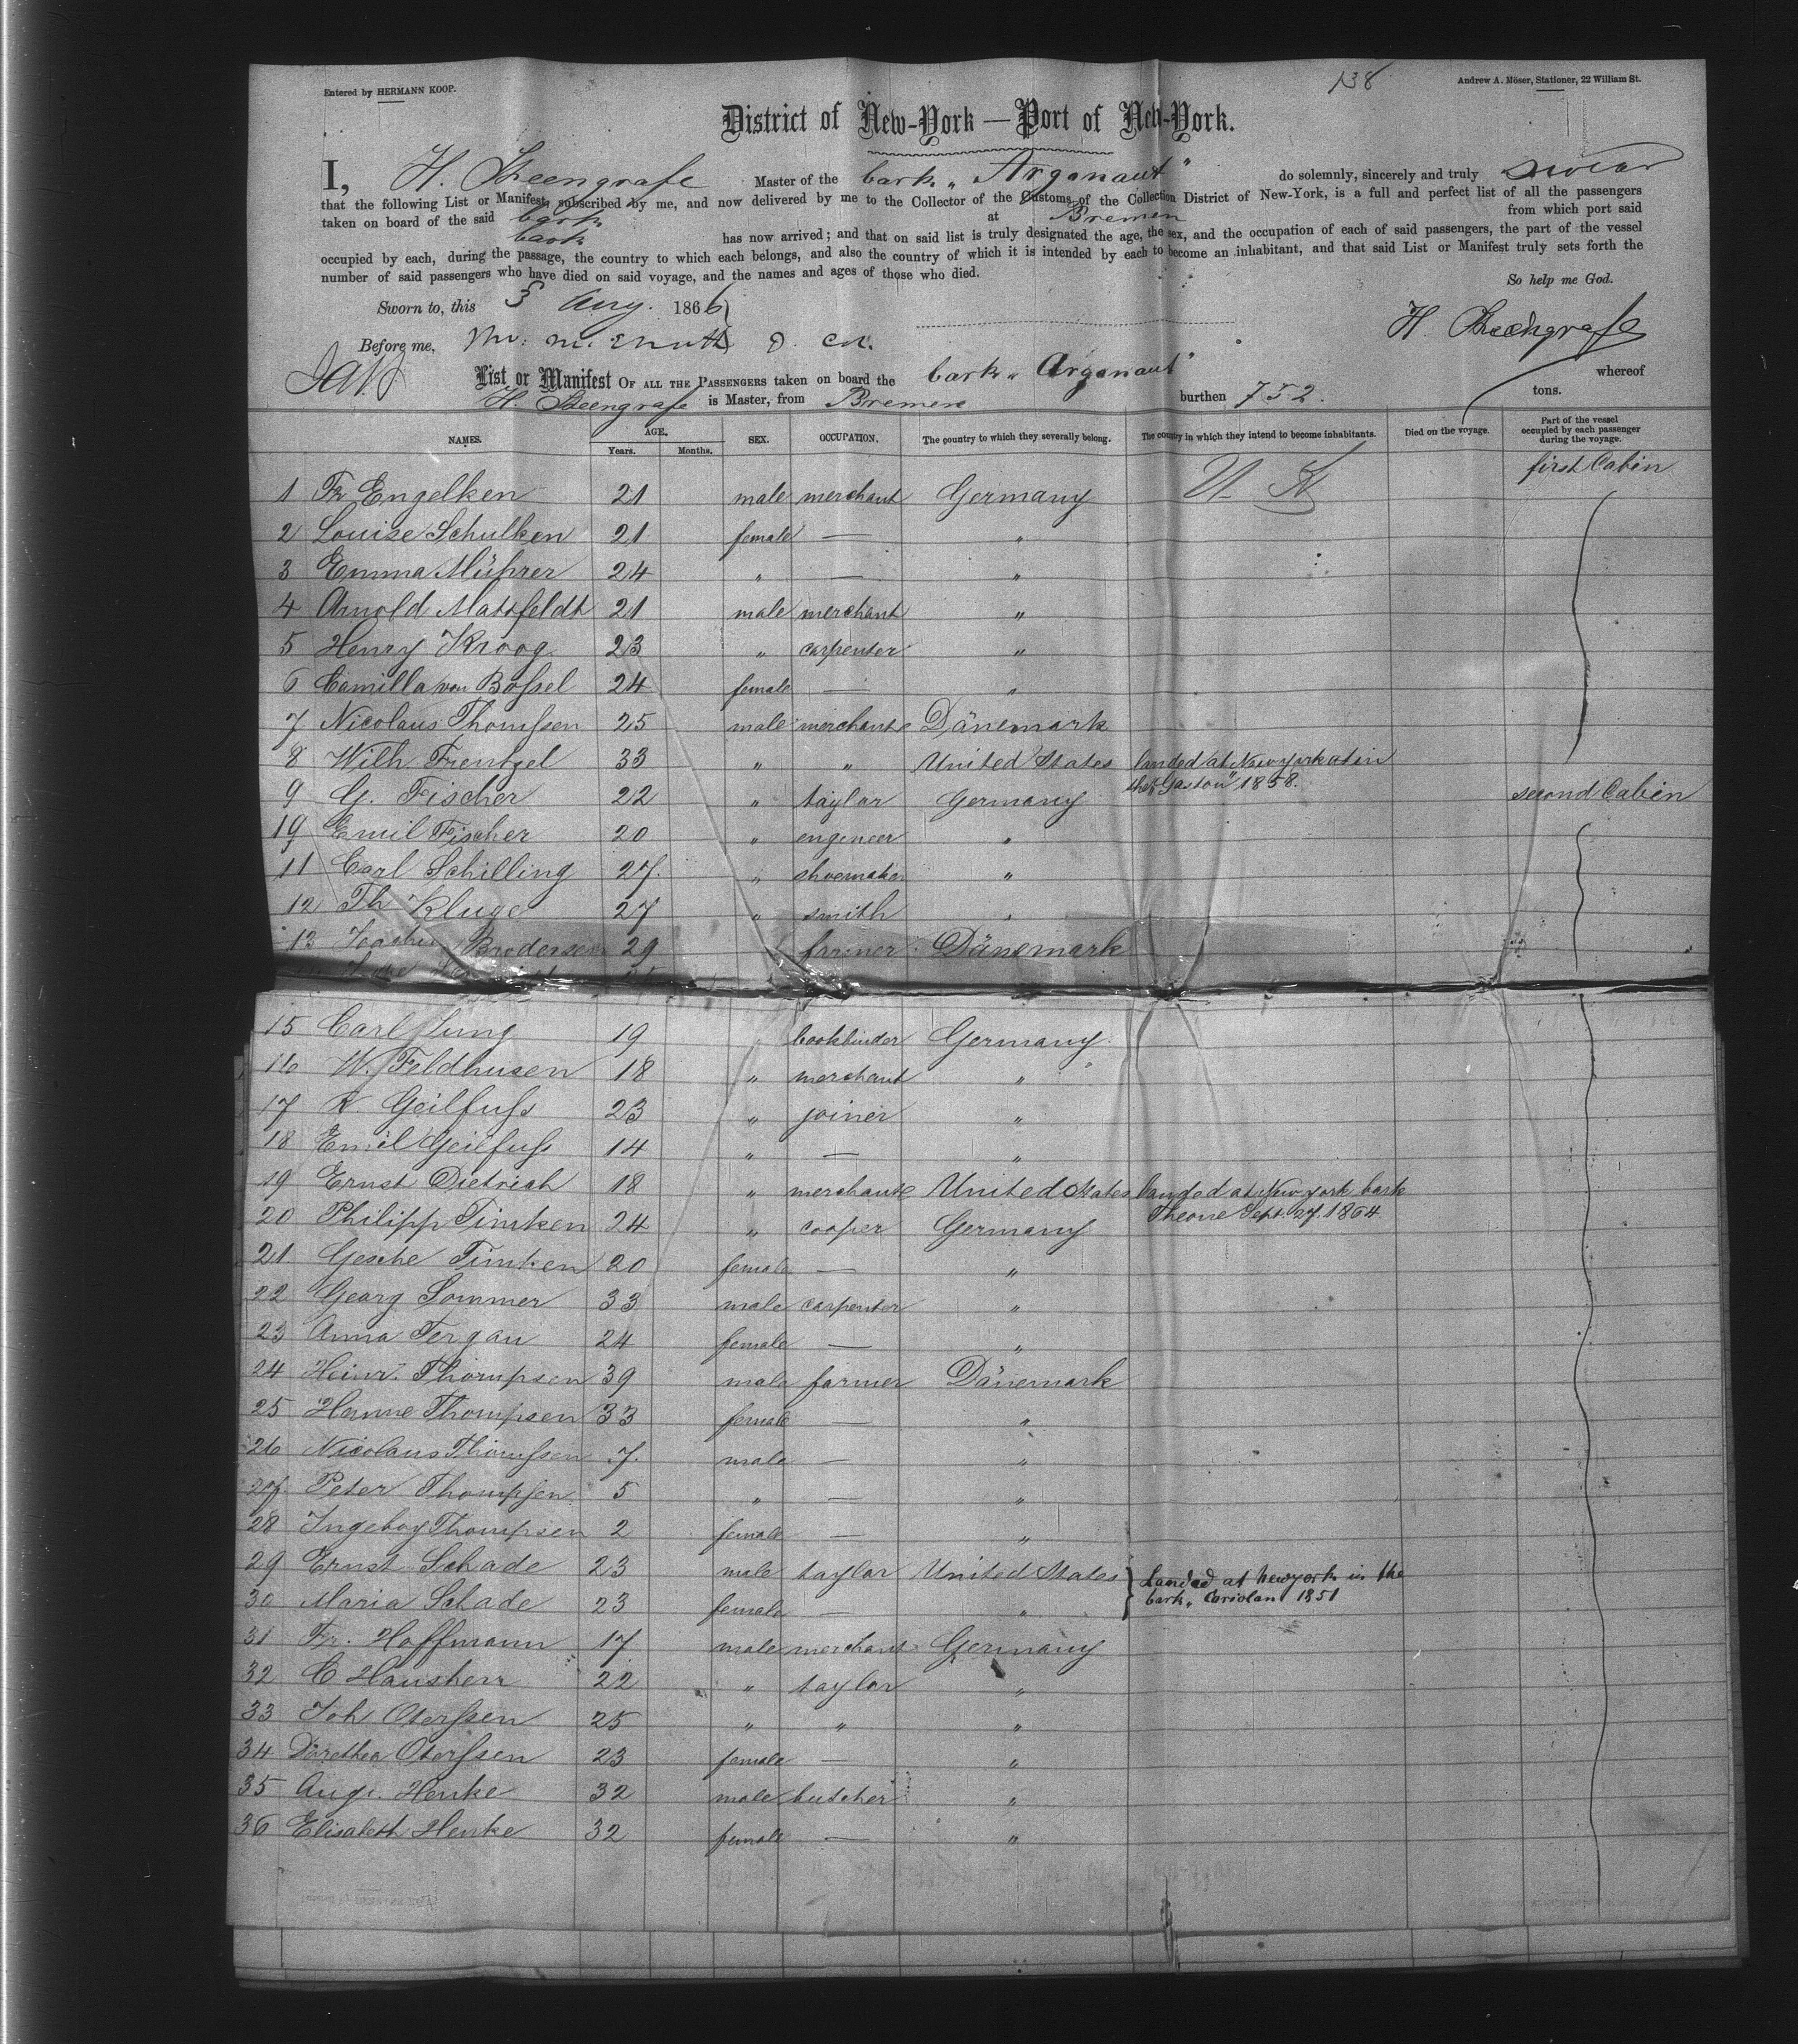 138
Entered by HERMANN KOOP.
Andrew A. Möser, Stationer, 22 William St.
District of New-York — Port of New-York.
I, H. Steengrafe Master of the bark „Argonaut" do solemnly, sincerely and truly swear
that the following List or Manifest, subscribed by me, and now delivered by me to the Collector of the Customs of the Collection District of New-York, is a full and perfect list of all the passengers
taken on board of the said bark at Bremen from which port said
bark has now arrived; and that on said list is truly designated the age, the sex, and the occupation of each of said passengers, the part of the vessel
occupied by each, during the passage, the country to which each belongs, and also the country of which it is intended by each to become an inhabitant, and that said List or Manifest truly sets forth the
number of said passengers who have died on said voyage, and the names and ages of those who died.
So help me God.
Sworn to, this 3 Aug. 1866
H. Steengrafe
Before me,
List or Manifest OF ALL THE PASSENGERS taken on board the bark „Argonaut" whereof
H. Steengrafe is Master, from Bremen burthen 752. tons.
NAMES. AGE. Years. Months. SEX. OCCUPATION. The country to which they severally belong. The country in which they intend to become inhabitants. Died on the voyage. Part of the vessel occupied by each passenger during the voyage.
first Cabin
1 Fr Engelken 21 male merchant Germany U St
2 Louise Schulken 21 female — "
3 Emma Mührer 24 " — "
4 Arnold Matsfeldt 21 male merchant "
5 Henry Kroog 23 " carpenter "
6 Camilla von Boſsel 24 female — "
7 Nicolaus Thomſsen 25 male merchant Dänemark
8 Wilh Frentzel 33 " " United States landed at New york in
9 G. Fischer 22 " taylor Germany the „Gaston" 1858. second Cabin
19 Emil Fischer 20 " engeneer "
11 Carl Schilling 27. " shoemaker "
12 Th Kluge 27 " smith "
13 Brodersen 29 farmer Dänemark
15 Carl Jung 19 bookbinder Germany
16 W. Feldhusen 18 " merchant "
17 R. Geilfuſs 23 " joiner "
18 Emil Geilfuſs 14 " — "
19 Ernst Dietrich 18 " merchant United States landed at New york bark
20 Philipp Timken 24 " cooper Germany Theone Sept. 27. 1864.
21 Gesche Timken 20 female — "
22 Georg Sommer 33 male carpenter "
23 Anna Tergau 24 female — "
24 Heinr. Thompsen 39 male farmer Dänemark
25 Hanne Thompsen 33 female — "
26 Nicolaus Thomſsen 7. male — "
27 Peter Thompsen 5 " — "
28 Ingeboy Thompsen 2 female — "
29 Ernst Schade 23 male taylor United States } Landed at Newyork in the
30 Maria Schade 23 female — " bark „Coriolan 1851
31 Fr. Hoffmann 17 male merchant Germany
32 C Hausherr 22 " taylor "
33 Joh Oterſsen 25 " " "
34 Dorethea Oterſsen 23 female — "
35 Aug. Henke 32 male butcher "
36 Elisabeth Henke 32 female — "